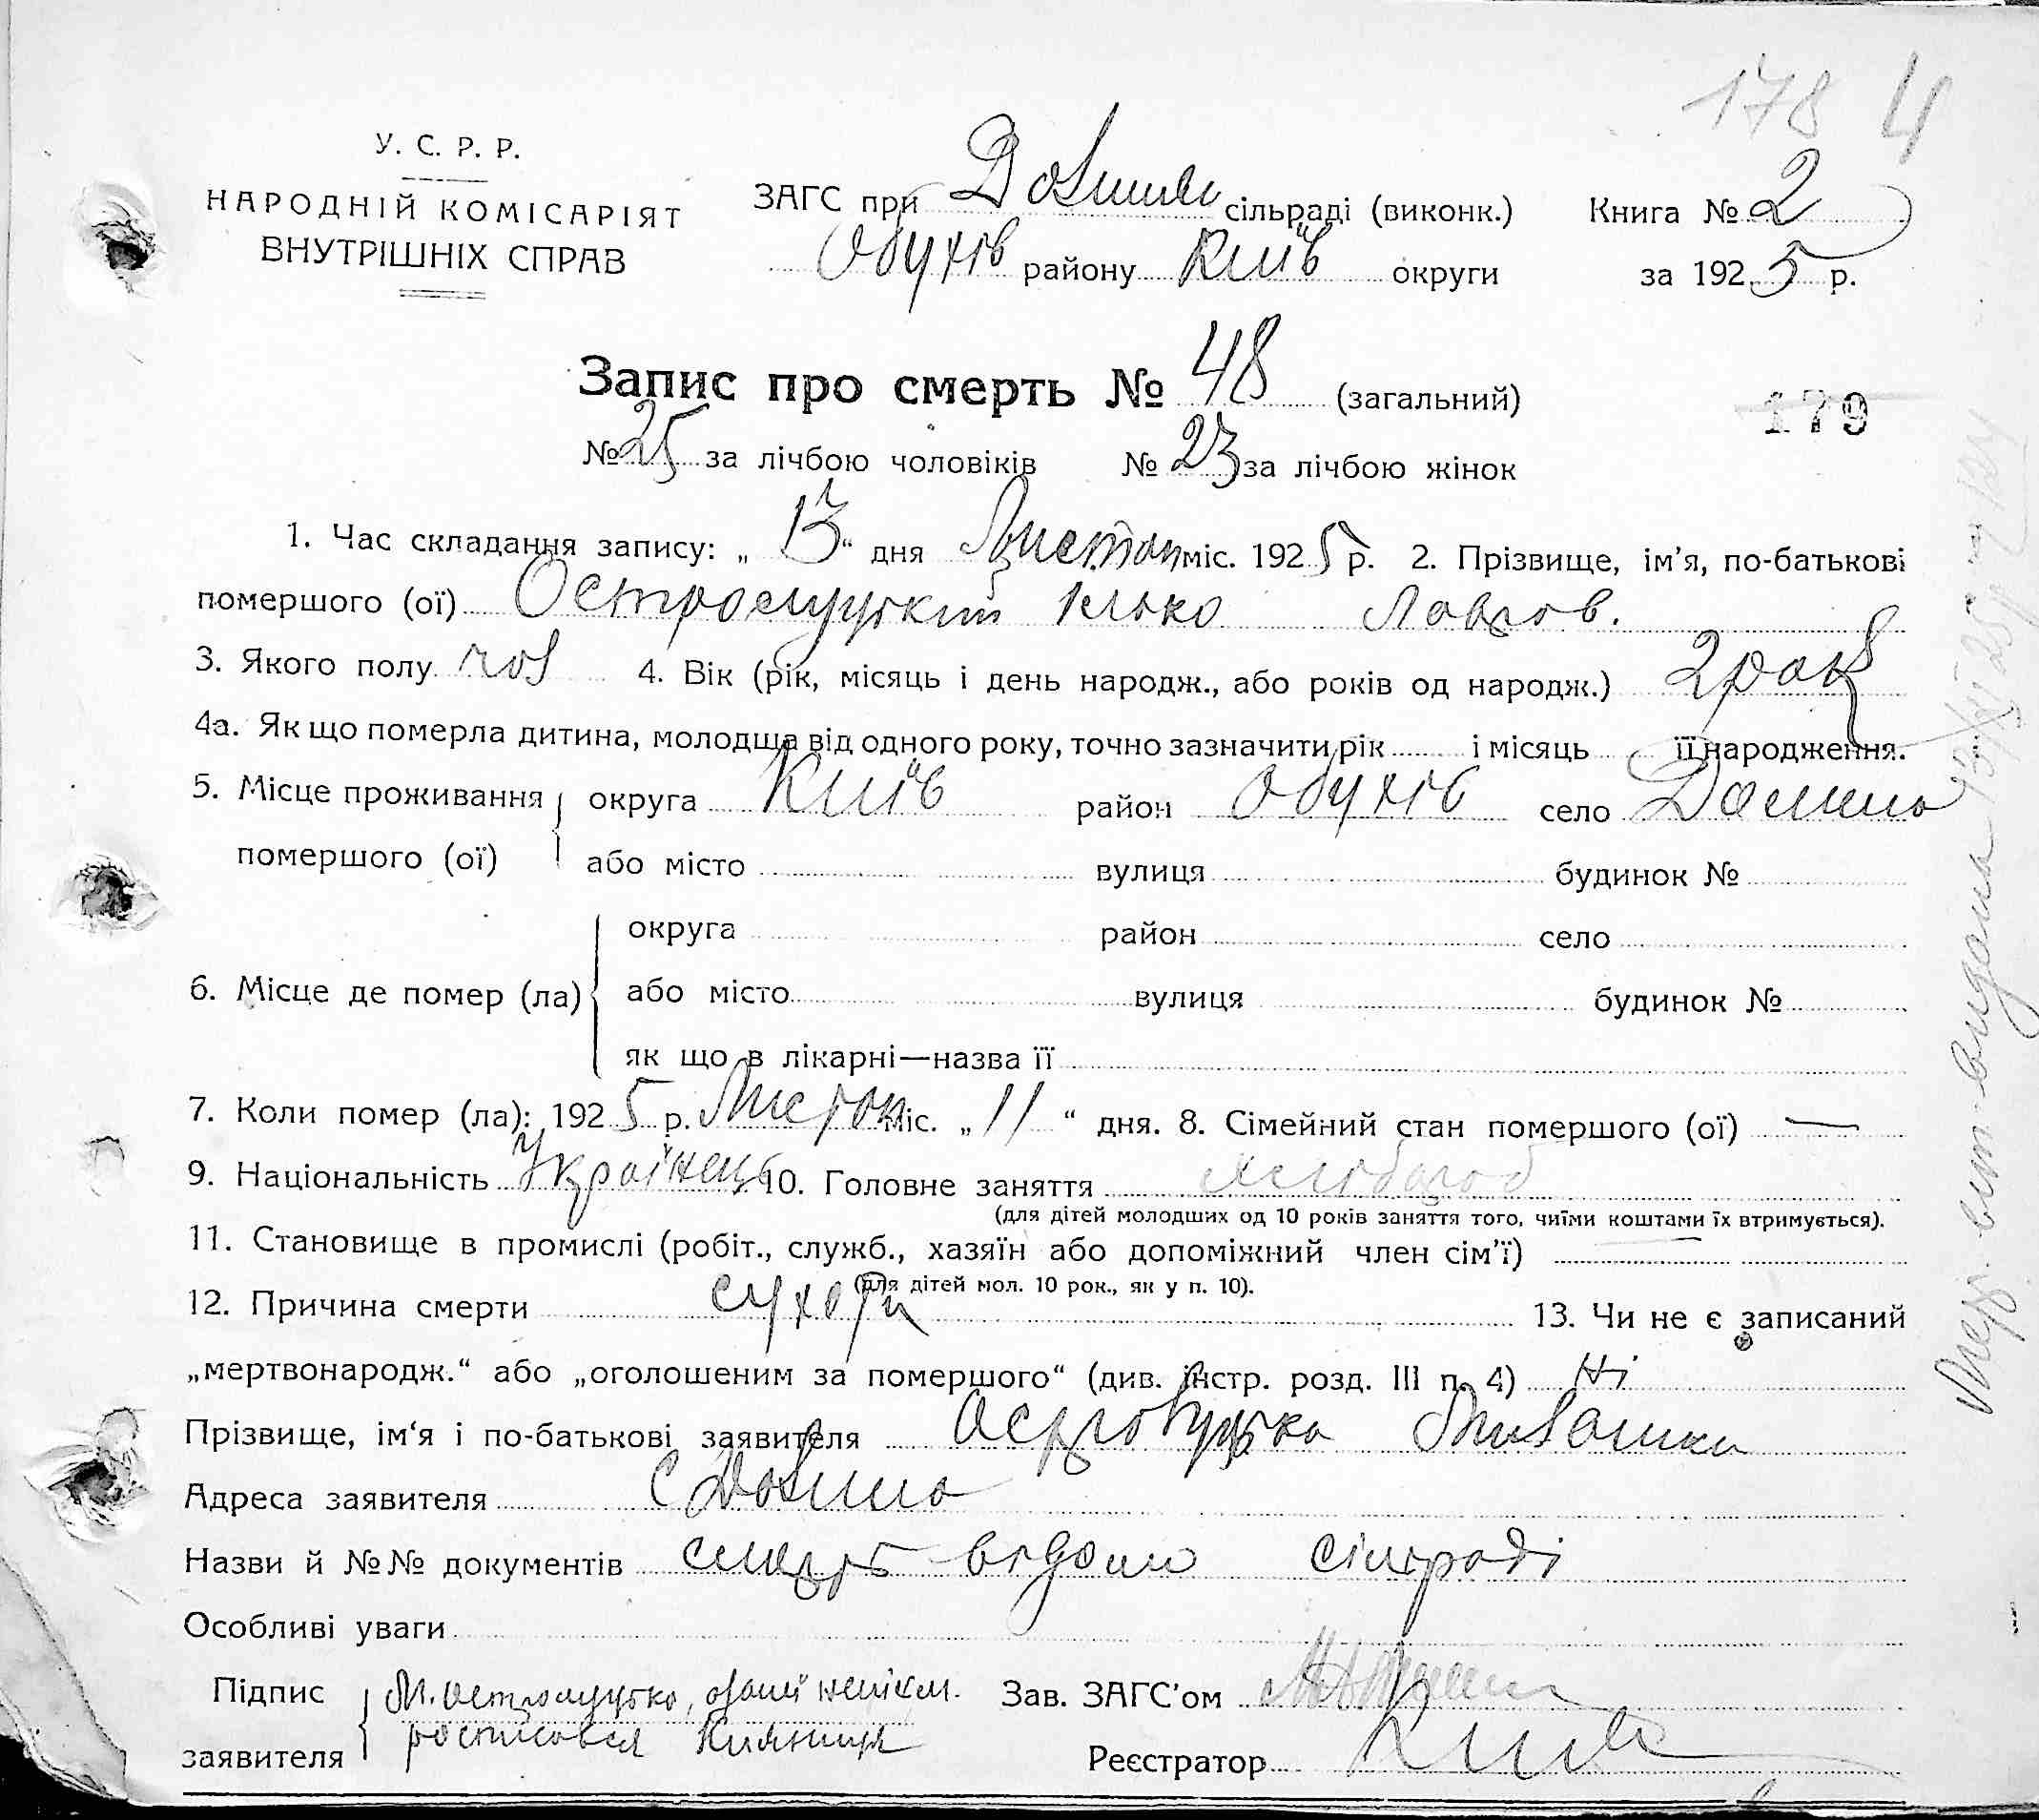 178 4
У. С. Р. Р.
НАРОДНІЙ КОМІСАРІЯТ
ВНУТРІШНІХ СПРАВ
ЗАГС при сільраді (виконк.) Книга № 2
Обухів району Київ округи за 1925 р.
Запис про смерть № 48 (загальний)
179
№ 25 за лічбою чоловіків № 23 за лічбою жінок
1. Час складання запису: „13“ дня Листоп міс. 1925 р. 2. Прізвище, ім’я, по-батькові
помершого (ої)
3. Якого полу чол 4. Вік (рік, місяць і день народж., або років од народж.) 2 рок
4а. Як що померла дитина, молодща від одного року, точно зазначити рік і місяць її народження.
5. Місце проживання округа Київ район Обухів село Долина
помершого (ої) або місто вулиця будинок №
округа район село
6. Місце де помер (ла) або місто вулиця будинок №
як що в лікарні—назва її
7. Коли помер (ла): 1925 р. Листоп міс. „11“ дня. 8. Сімейний стан помершого (ої) —
9. Національність Українець 10. Головне заняття хлібороб
(для дітей молодших од 10 років заняття того, чиїми коштами їх втримується).
11. Становище в промислі (робіт., служб., хазяїн або допоміжний член сім’ї)
(для дітей мол. 10 рок., як у п. 10).
12. Причина смерти сухоти 13. Чи не є записаний
„мертвонародж.“ або „оголошеним за помершого“ (див. інстр. розд. III п. 4) Ні
Прізвище, ім‘я і по-батькові заявителя
Адреса заявителя с Долина
Назви й №№ документів смерть відома сільраді
Особливі уваги
Підпис М. Остролуцька, а за неї неписм. Зав. ЗАГС’ом
заявителя росписався Реєстратор